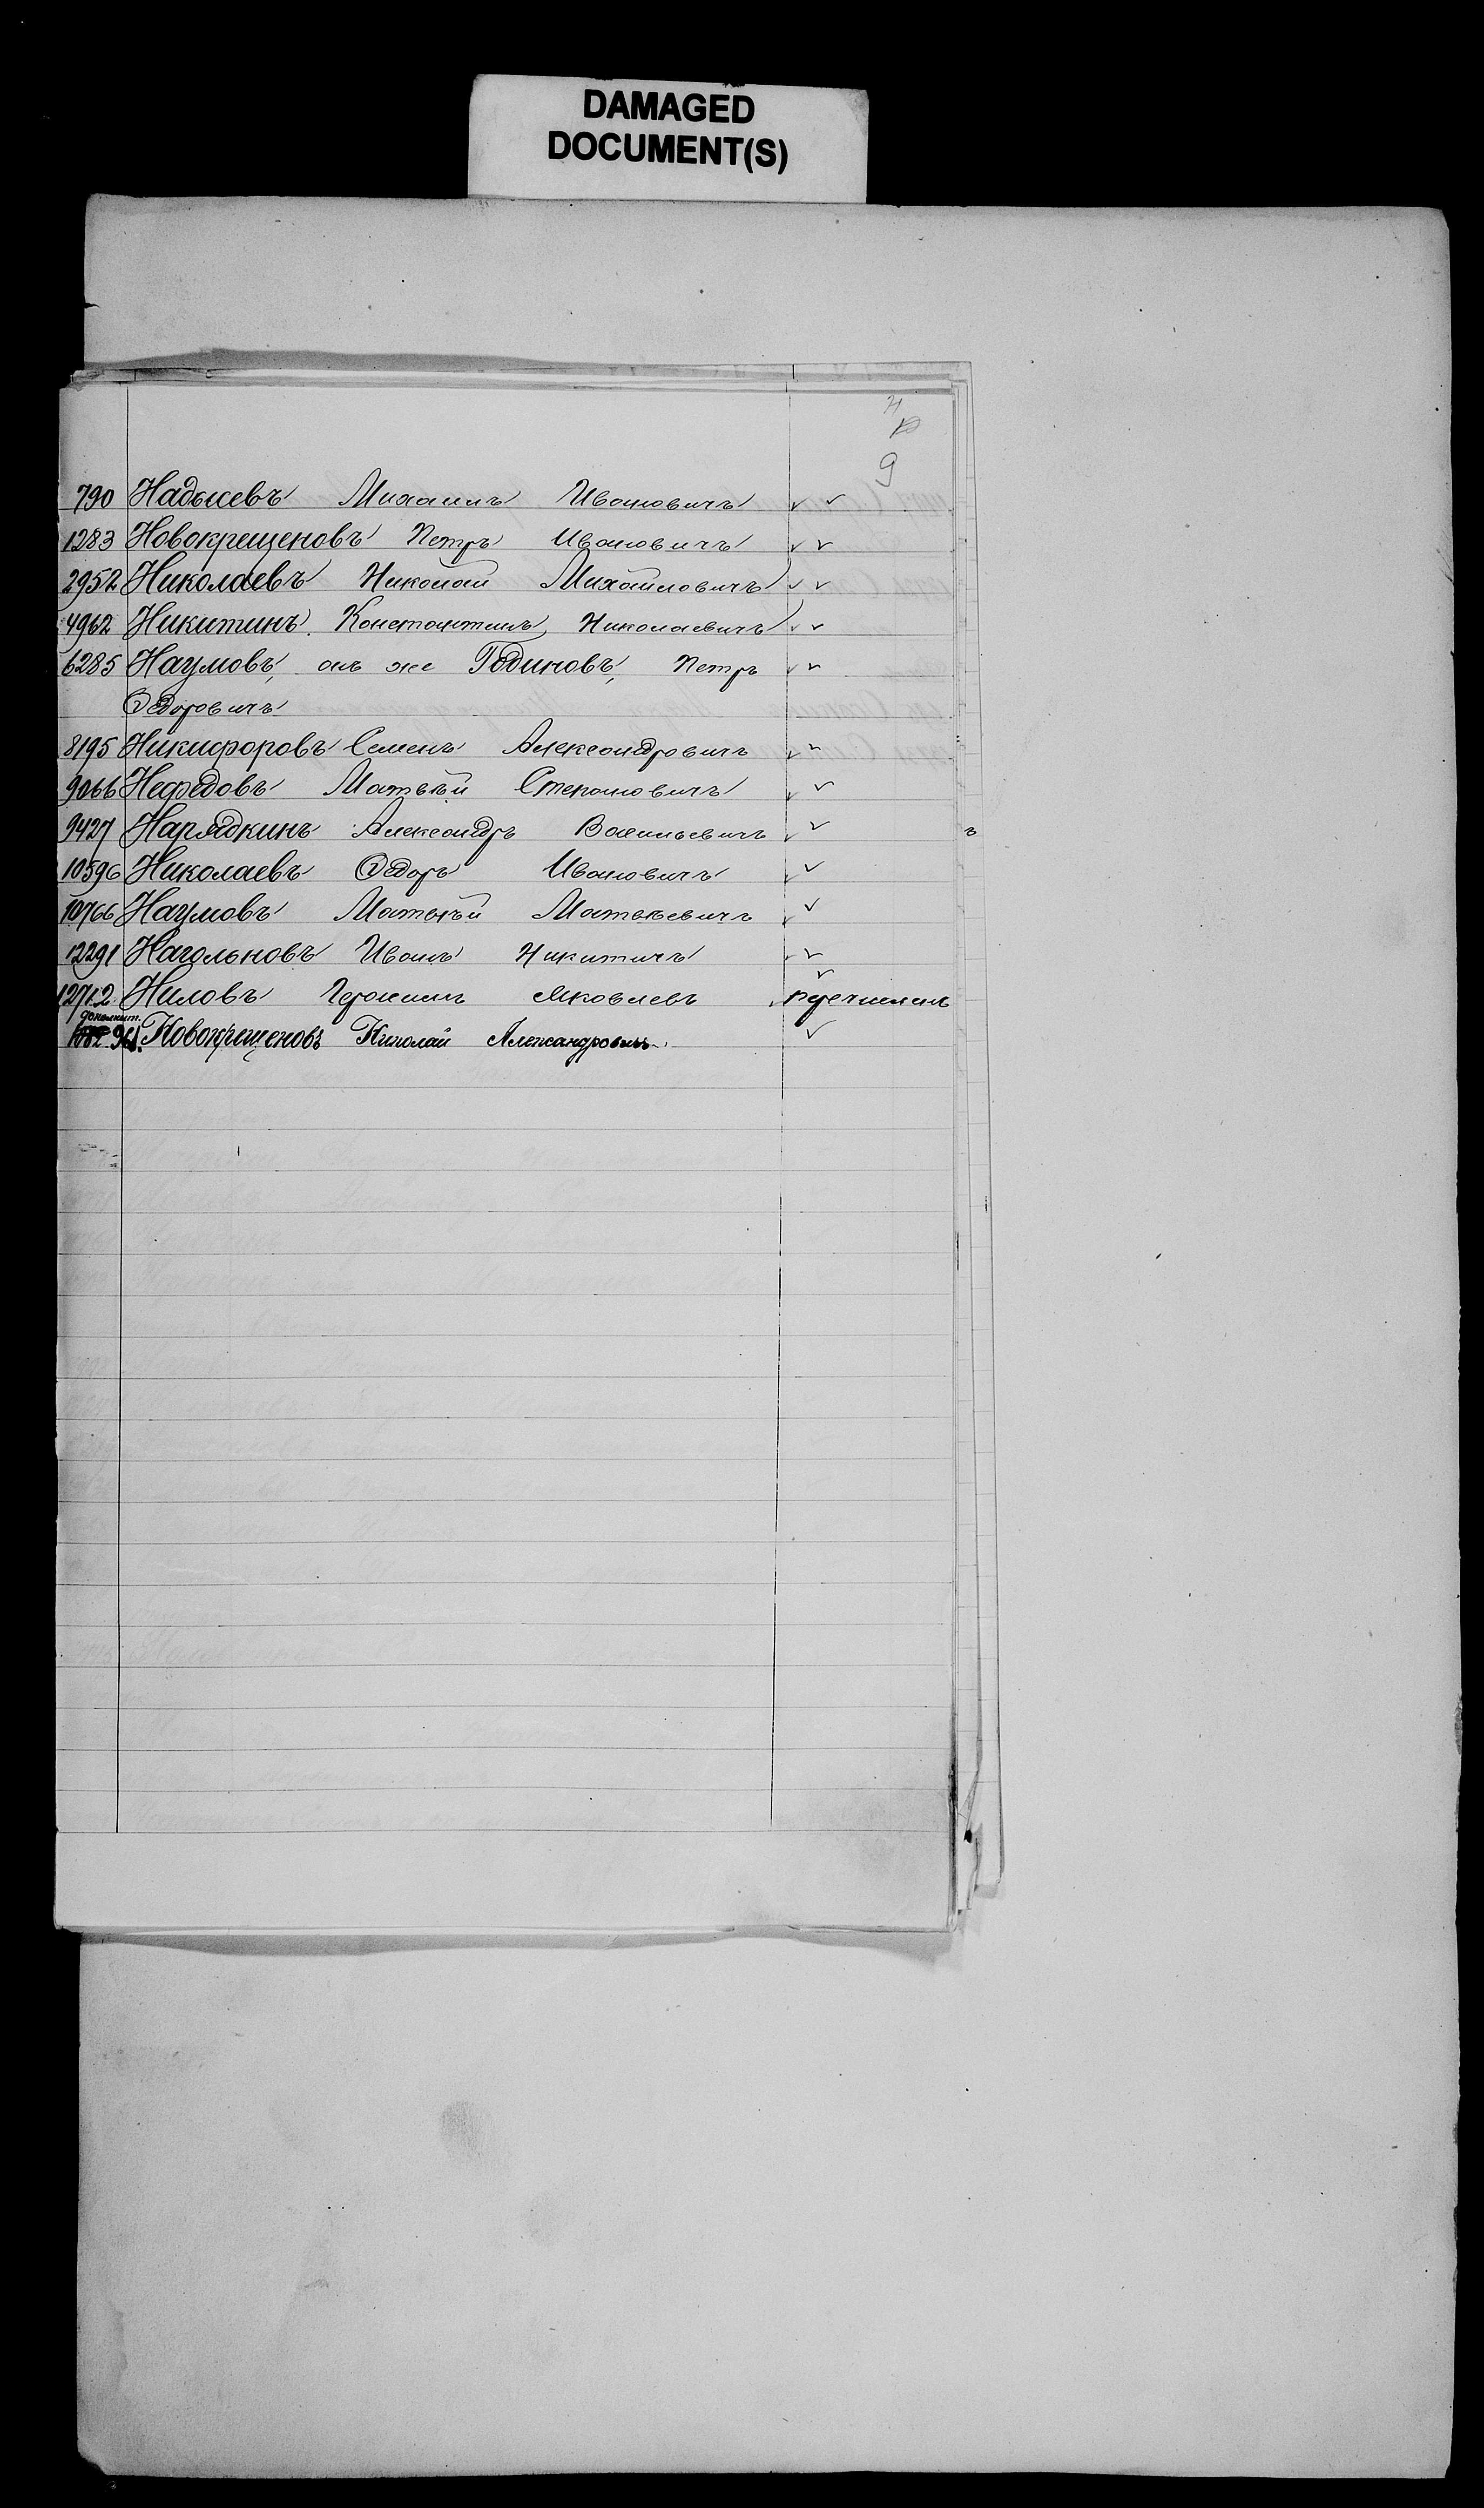 DAMAGED
DOCUMENT(S)
Н
9
790 Надысевъ Михаилъ Ивановичъ
1283 Новокрещеновъ Петръ Ивановичъ
2952 Николаевъ Николай Михайловичъ
4962 Никитинъ Константинъ Николаевичъ
6285 Наумовъ, онъ же Годиновъ, Петръ
Ѳедоровичъ
8195 Никифоровъ Семенъ Александровичъ
9066 Нефедовъ Матвѣй Степановичъ
9427 Нарядкинъ Александръ Васильевичъ
10596 Николаевъ Ѳедоръ Ивановичъ
10766 Наумовъ Матвѣй Матвѣевичъ
12291 Нагольновъ Иванъ Никитичъ
12712 Ниловъ Герасимъ Яковлевъ перечисленъ
Новокрещеновъ Николай Александровичъ